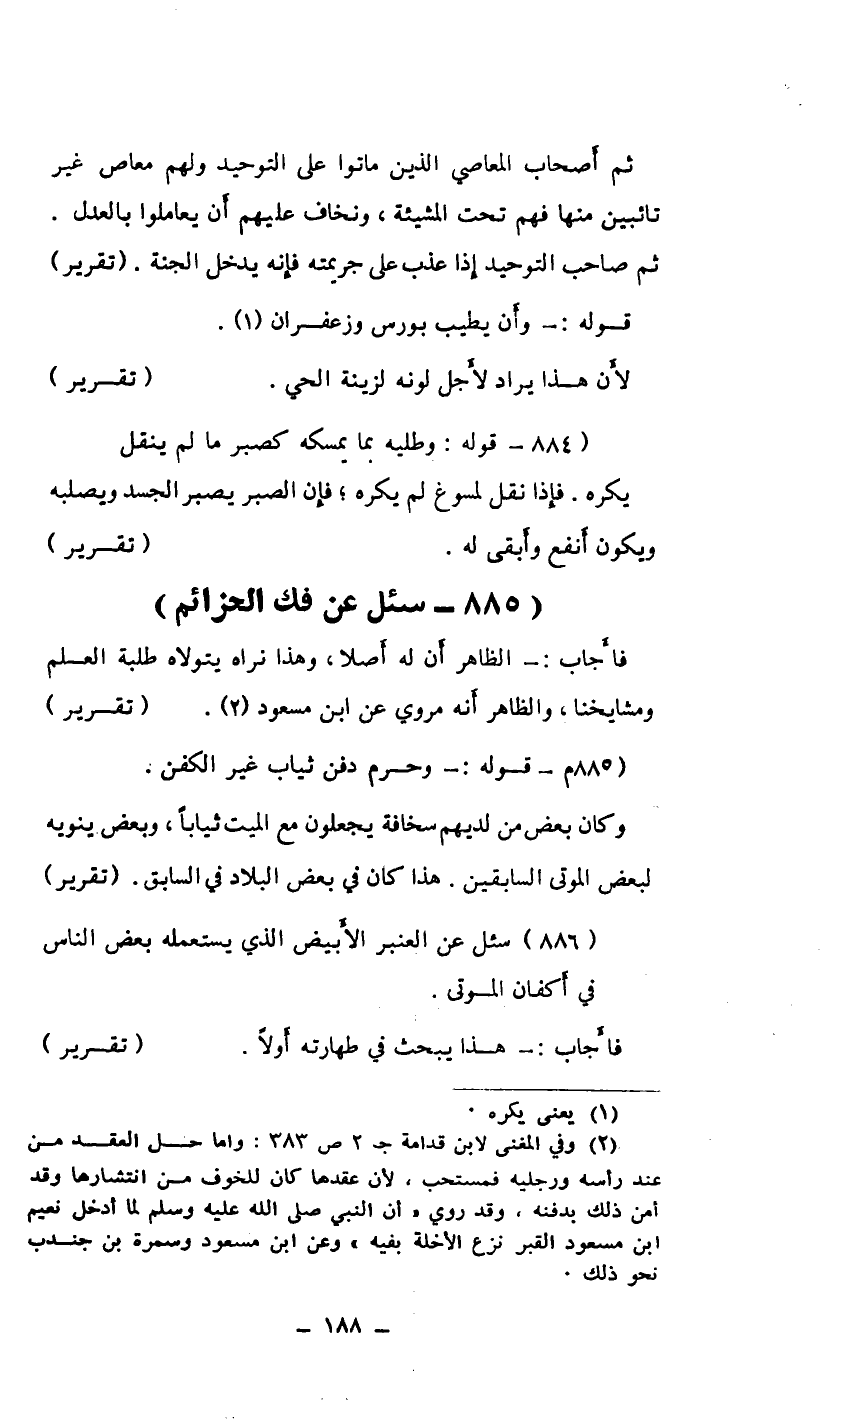 ثم أصحاب المعاصي الذين ماتوا على التوحيد ولهم معاص غير
تائبين منها فهم تحت المشيئة ، ونخاف عليهم أن يعاملوا بالعدل .
ثم صاحب التوحيد إذا عذب على جريمته فإنه يدخل الجنة . (تقرير)
قوله :ـ وأن يطيب بورس وزعفران (١) .
لأن هذا يراد لأجل لونه لزينة الحي . ( تقرير )
( ٨٨٤ ـ قوله : وطليه بما يمسكه كصبر ما لم ينقل
يكره . فإذا نقل لمسوغ لم يكره ؛ فإن الصبر يصبر الجسد ويصلبه
ويكون أنفع وأبقى له . ( تقرير )
( ٨٨٥ ـ سئل عن فك الحزائم )
فأجاب :ـ الظاهر أن له أصلا ، وهذا نراه يتولاه طلبة العلم
ومشايخنا ، والظاهر أنه مروي عن ابن مسعود (٢) . ( تقرير )
( ٨٨٥م ـ قوله :ـ وحرم دفن ثياب غير الكفن .
وكان بعض من لديهم سخافة يجعلون مع الميت ثياباً ، وبعض ينويه
لبعض الموتى السابقين . هذا كان في بعض البلاد في السابق . (تقرير)
( ٨٨٦ ) سئل عن العنبر الأبيض الذي يستعمله بعض الناس
في أكفان الموتى .
فأجاب :ـ هذا يبحث في طهارته أولاً . ( تقرير )
(١) يعنى يكره .
(٢) وفي المغنى لابن قدامة جـ ٢ ص ٣٨٣ : واما حل العقد من
عند رأسه ورجليه فمستحب ، لأن عقدها كان للخوف من انتشارها وقد
أمن ذلك بدفنه ، وقد روي « أن النبي صلى الله عليه وسلم لما أدخل نعيم
ابن مسعود القبر نزع الأخلة بفيه » وعن ابن مسعود وسمرة بن جندب
نحو ذلك .
ـ ١٨٨ ـ